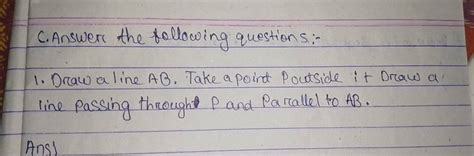 C. Answer the following questions:-
1. Draw a line AB. Take a point P outside it Draw a
line Passing throught P and Parallel to AB.
Ans)